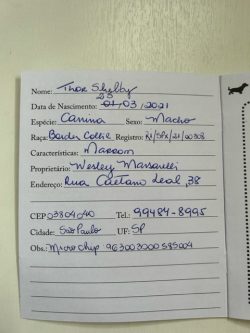 Nome: Thor Shelby
25
Data de Nascimento: 01/03/2021
Espécie: Canina Sexo: Macho
Raça: Border Collie Registro: RI/SPX/21/00308
Características: Marrom
Proprietário: Wesley Massarelli
Endereço: Rua Caetano Leal, 38
CEP 03804040 Tel.: 99484-8995
Cidade: São Paulo UF: SP
Obs: Microchip 963003000585004